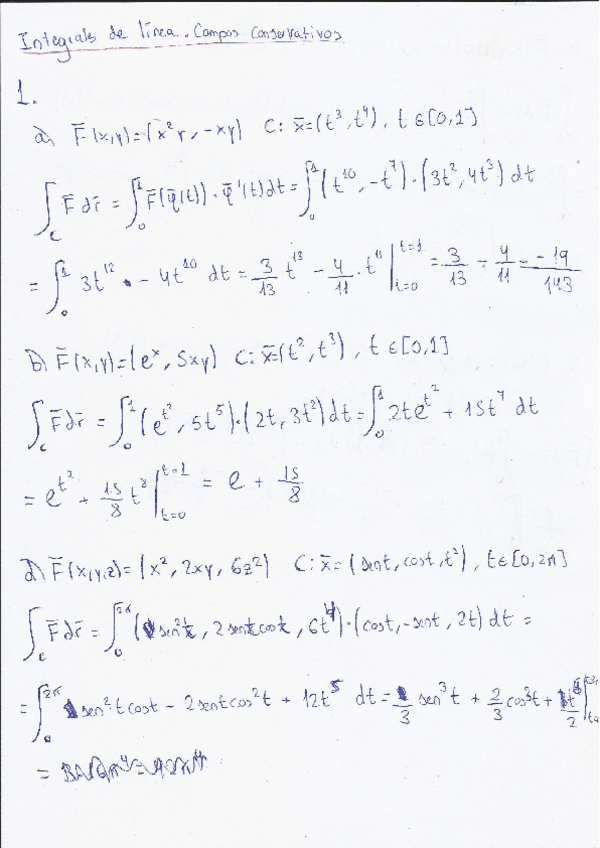 Integrales de línea. Campos Conservativos
1.
a) F̄(x,y)=(x²y, -xy) C: x̄=(t³, t⁴), t∈[0,1]
∫_C F̄ dr̄ = ∫₀¹ F̄(φ̄(t))·φ̄'(t)dt = ∫₀¹ (t¹⁰, -t⁷)·(3t², 4t³) dt
= ∫₀¹ 3t¹² - 4t¹⁰ dt = 3/13 t¹³ - 4/11 · t¹¹ |_{t=0}^{t=1} = 3/13 - 4/11 = -19/143
b) F̄(x,y)=(eˣ, 5xy) C: x̄=(t², t³), t∈[0,1]
∫_C F̄dr̄ = ∫₀¹ (e^{t²}, 5t⁵)·(2t, 3t²)dt = ∫₀¹ 2te^{t²} + 15t⁷ dt
= e^{t²} + 15/8 t⁸ |_{t=0}^{t=1} = e + 15/8
d) F̄(x,y,z)=(x², 2xy, 6z²) C: x̄=(sent, cost, t²), t∈[0,2π]
∫_C F̄dr̄ = ∫₀^{2π} (sen²t, 2sentcost, 6t⁴)·(cost, -sent, 2t) dt =
= ∫₀^{2π} sen²tcost - 2sentcos²t + 12t⁵ dt = 1/3 sen³t + 2/3 cos³t +
=